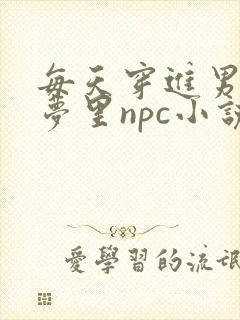 每天穿進男
夢里npc小説
愛學習的流氓